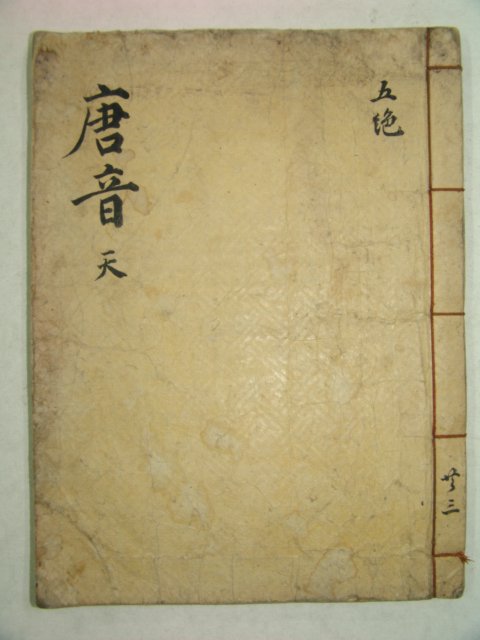 五絶
唐音 天
共三